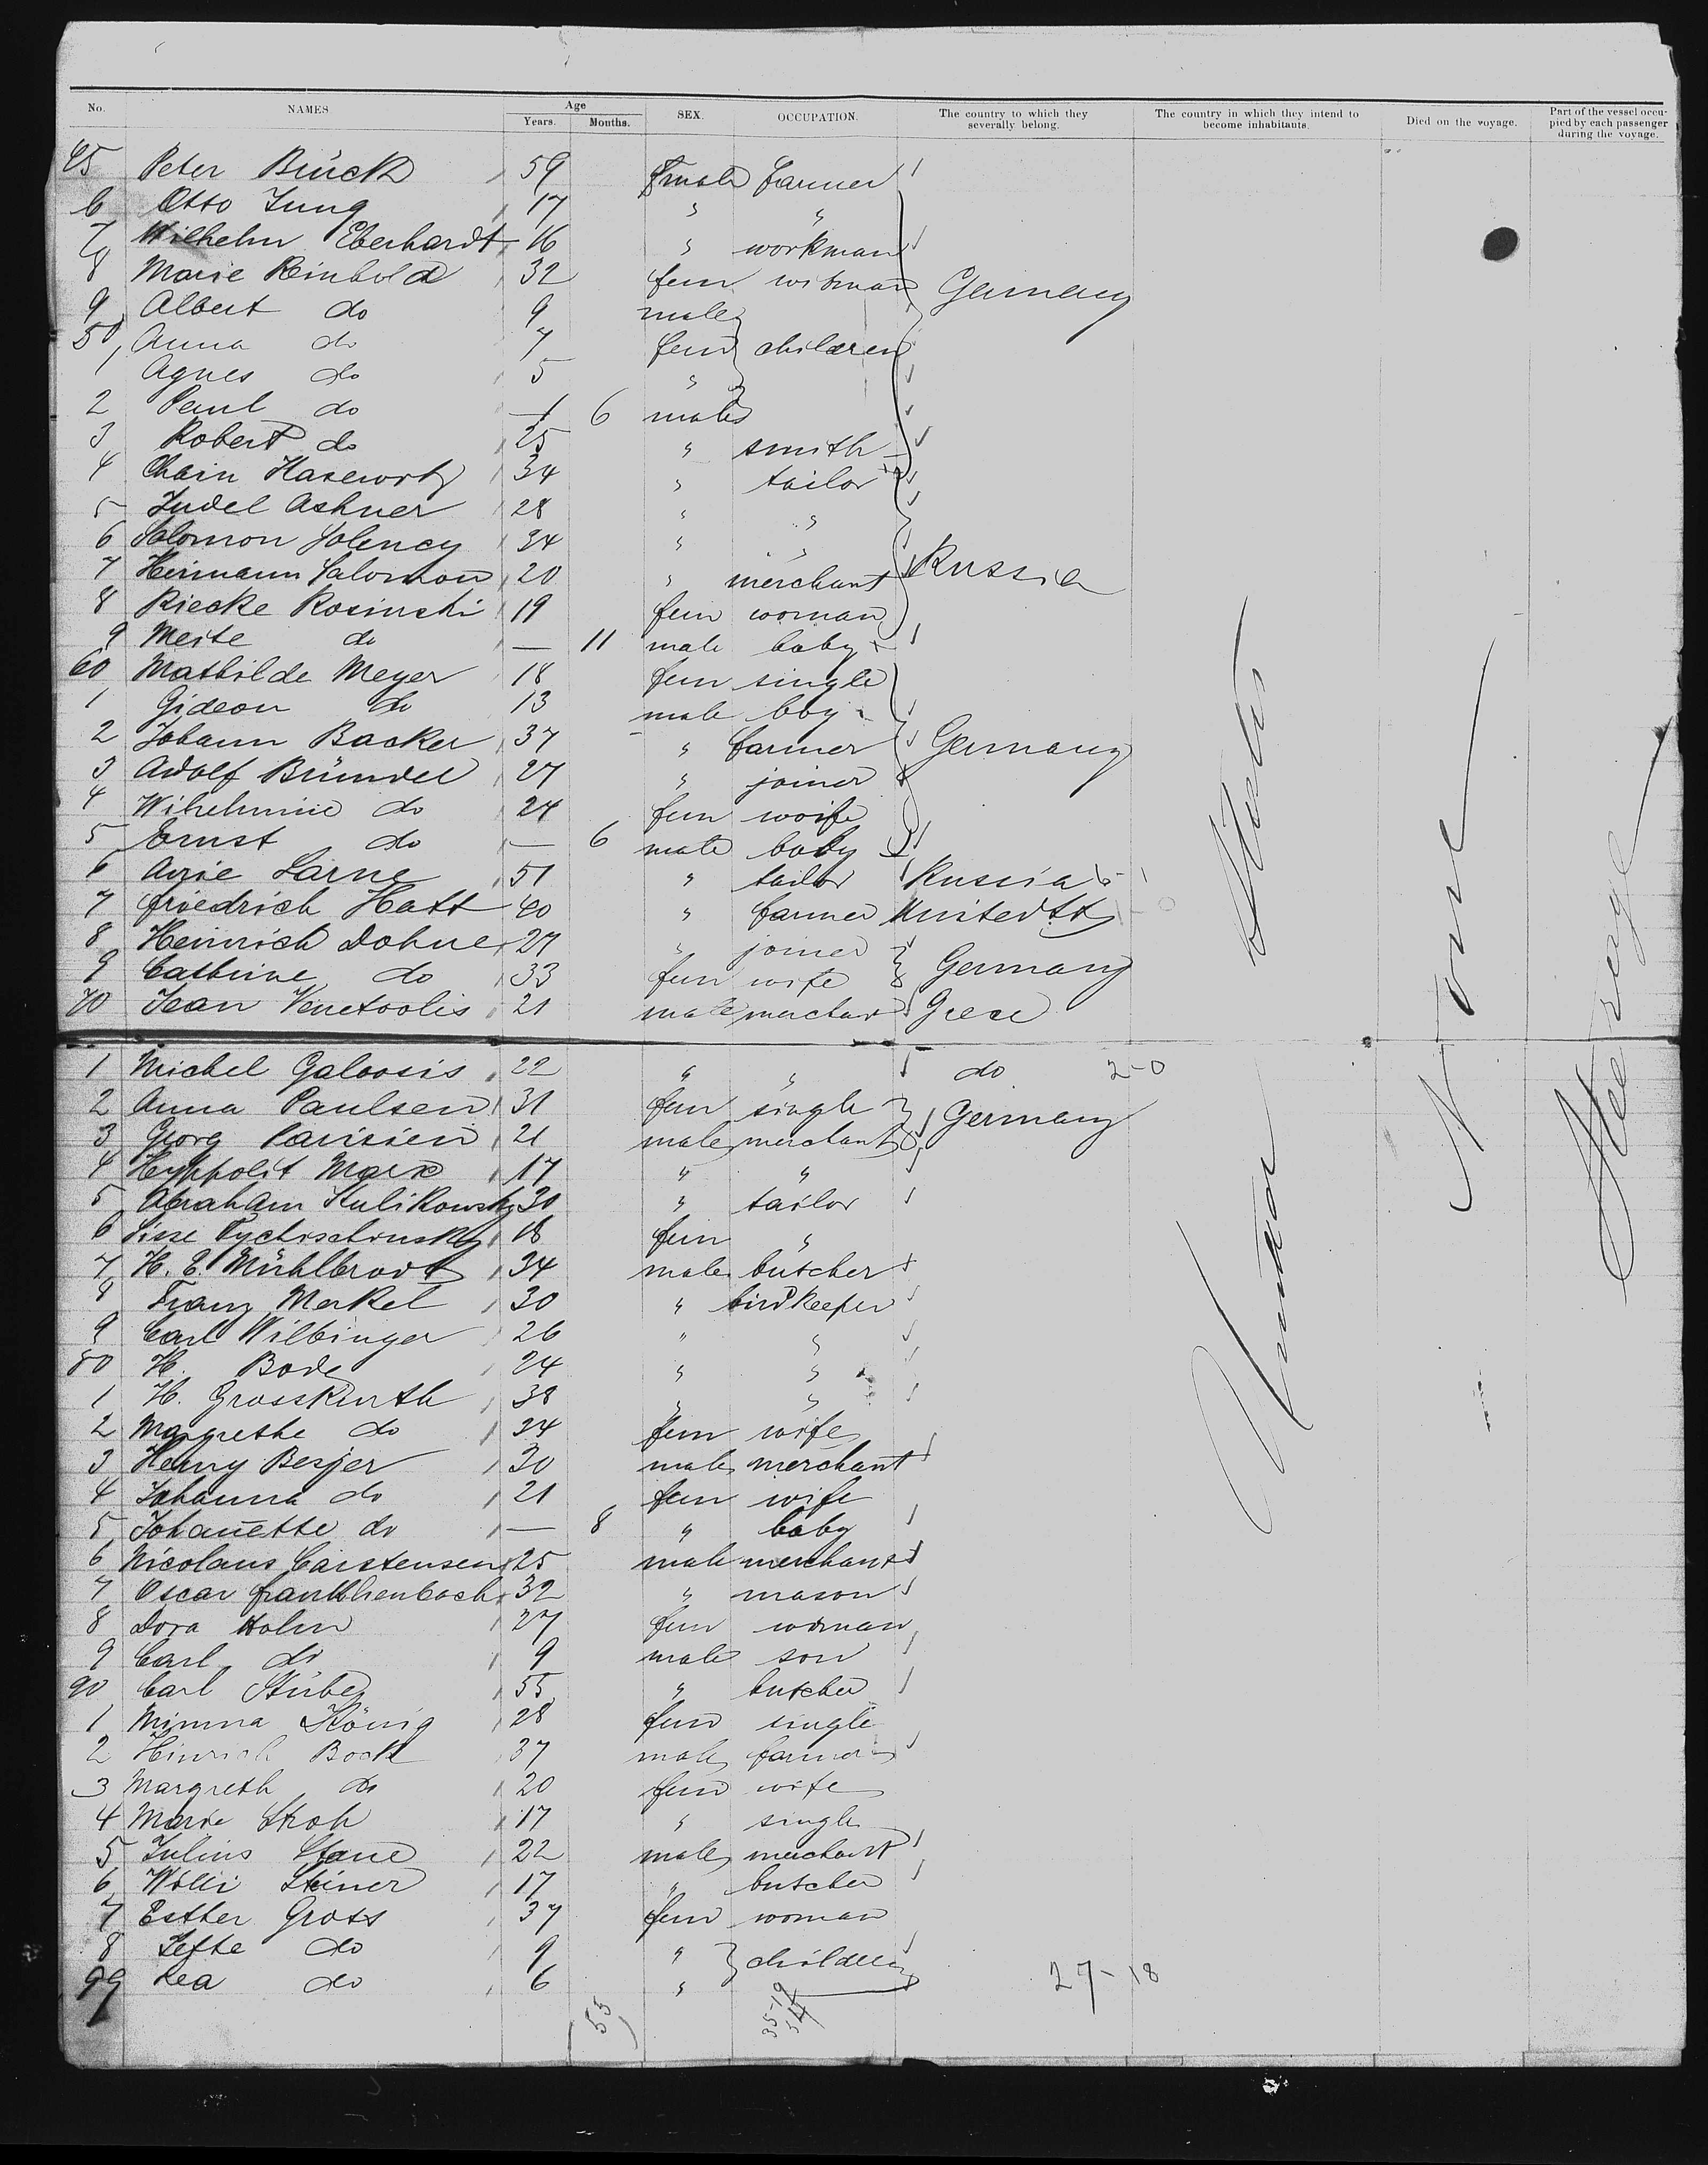 No. NAMES Age Years. Months. SEX. OCCUPATION. The country to which they severally belong. The country in which they intend to become inhabitants. Died on the voyage. Part of the vessel occupied by each passenger during the voyage.
45 Peter Brück 59 male farmer
6 Otto Jung 17 " "
7 Wilhelm Eberhardt 16 " workman
8 Marie Reinbold 32 fem Germany
9 Albert do 9 male
50 Anna do 7 fem children
1 Agnes do 5 "
2 Paul do 1 6 male
3 Robert do 25 " smith
4 Chain 34 " tailor
5 Judel Ashner 28 " "
6 Solomon Jolency 34 " "
7 Hermann Salomon 20 " merchant Russia
8 Riecke Rosinski 19 fem woman
9 Meite do — 11 male baby
60 Mathilde Meyer 18 fem single
1 Gideon do 13 male boy
2 Johann Backer 37 " farmer Germany
3 Adolf Bründel 27 " joiner
4 Wilhelmine do 24 fem wife
5 Ernst do — 6 male baby
6 Larne 51 " tailor Russia
7 Friedrich Hatt 40 " farmer United Sts
8 Heinrich Dohne 27 " joiner
9 Cathrine do 33 fem wife Germany
70 Jean Venetoolis 21 male merchant Grece
1 Michel Galoosis 22 " " do 2-0
2 Anna Paulsen 31 fem single Germany
3 Georg Parisien 21 male merchant
4 Hyppolit Marx 17 " "
5 Abraham Kulikowsky 30 " tailor
6 18 fem "
7 H. E. Mühlbrodt 34 male butcher
8 Franz Merkel 30 " birdkeeper
9 Carl Wilbinger 26 " "
80 H. Bode 24 " "
1 H. Grosskurth 38 " "
2 Margrethe do 34 fem wife
3 Henry Besjer 30 male merchant
4 Johanna do 21 fem wife
5 Johanette do — 8 " baby
6 Nicolaus Carstensen 25 male merchant
7 Oscar 32 " mason
8 Dora Holm 27 fem woman
9 Carl do 9 male son
90 Carl Stübe 55 " butcher
1 Minna König 28 fem single
2 Hinrich Bock 37 male farmer
3 Margreth do 20 fem wife
4 Marie Stroh 17 " single
5 Julius 22 male merchant
6 Willi Steiner 17 " butcher
7 Esther Gross 37 fem woman
8 Jette do 9 " children
99 Rea do 6 "
27-18
(53)
35-19
54
United States
None
Steerage